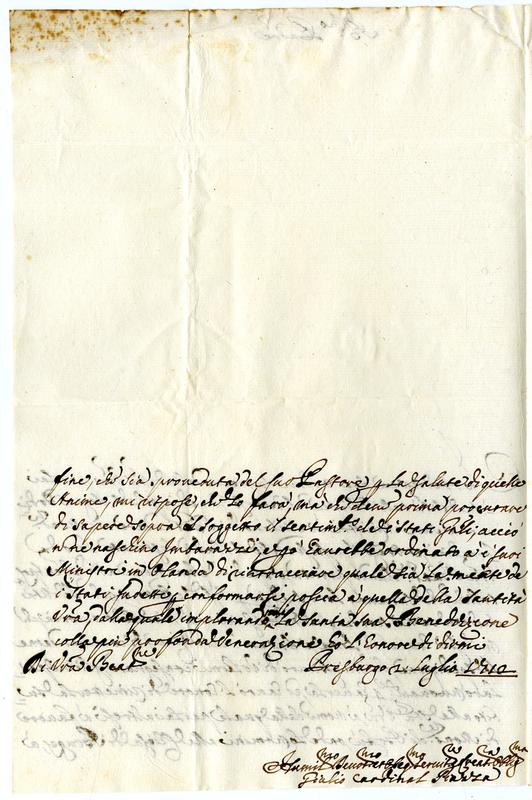 fine, che sia proveduta del suo Pastore p la salute di quelle
Anime, mi rispose, che lo farà, ma che deve prima procurare
di sapere sopra il soggetto il sentim.to de i Stati Gnli, acciò
n ne naschino Imbarazzi, e p ciò haurebbe ordinato a i suoi
Ministri in Olanda di rintracciare quale sia la mente de
i Stati sudetti p conformarse poscia a quella della Santità
Vra dalla quale implorando la Santa sua Benedizione
colla più profonda Venerazione hò l'honore di dirmi
Di Vra Beat.ne Presburgo 2. Luglio 1710
Humil.mo Devot.mo et Obblig.mo Servit.re Creat.ra
Giulio Cardinal Piazza